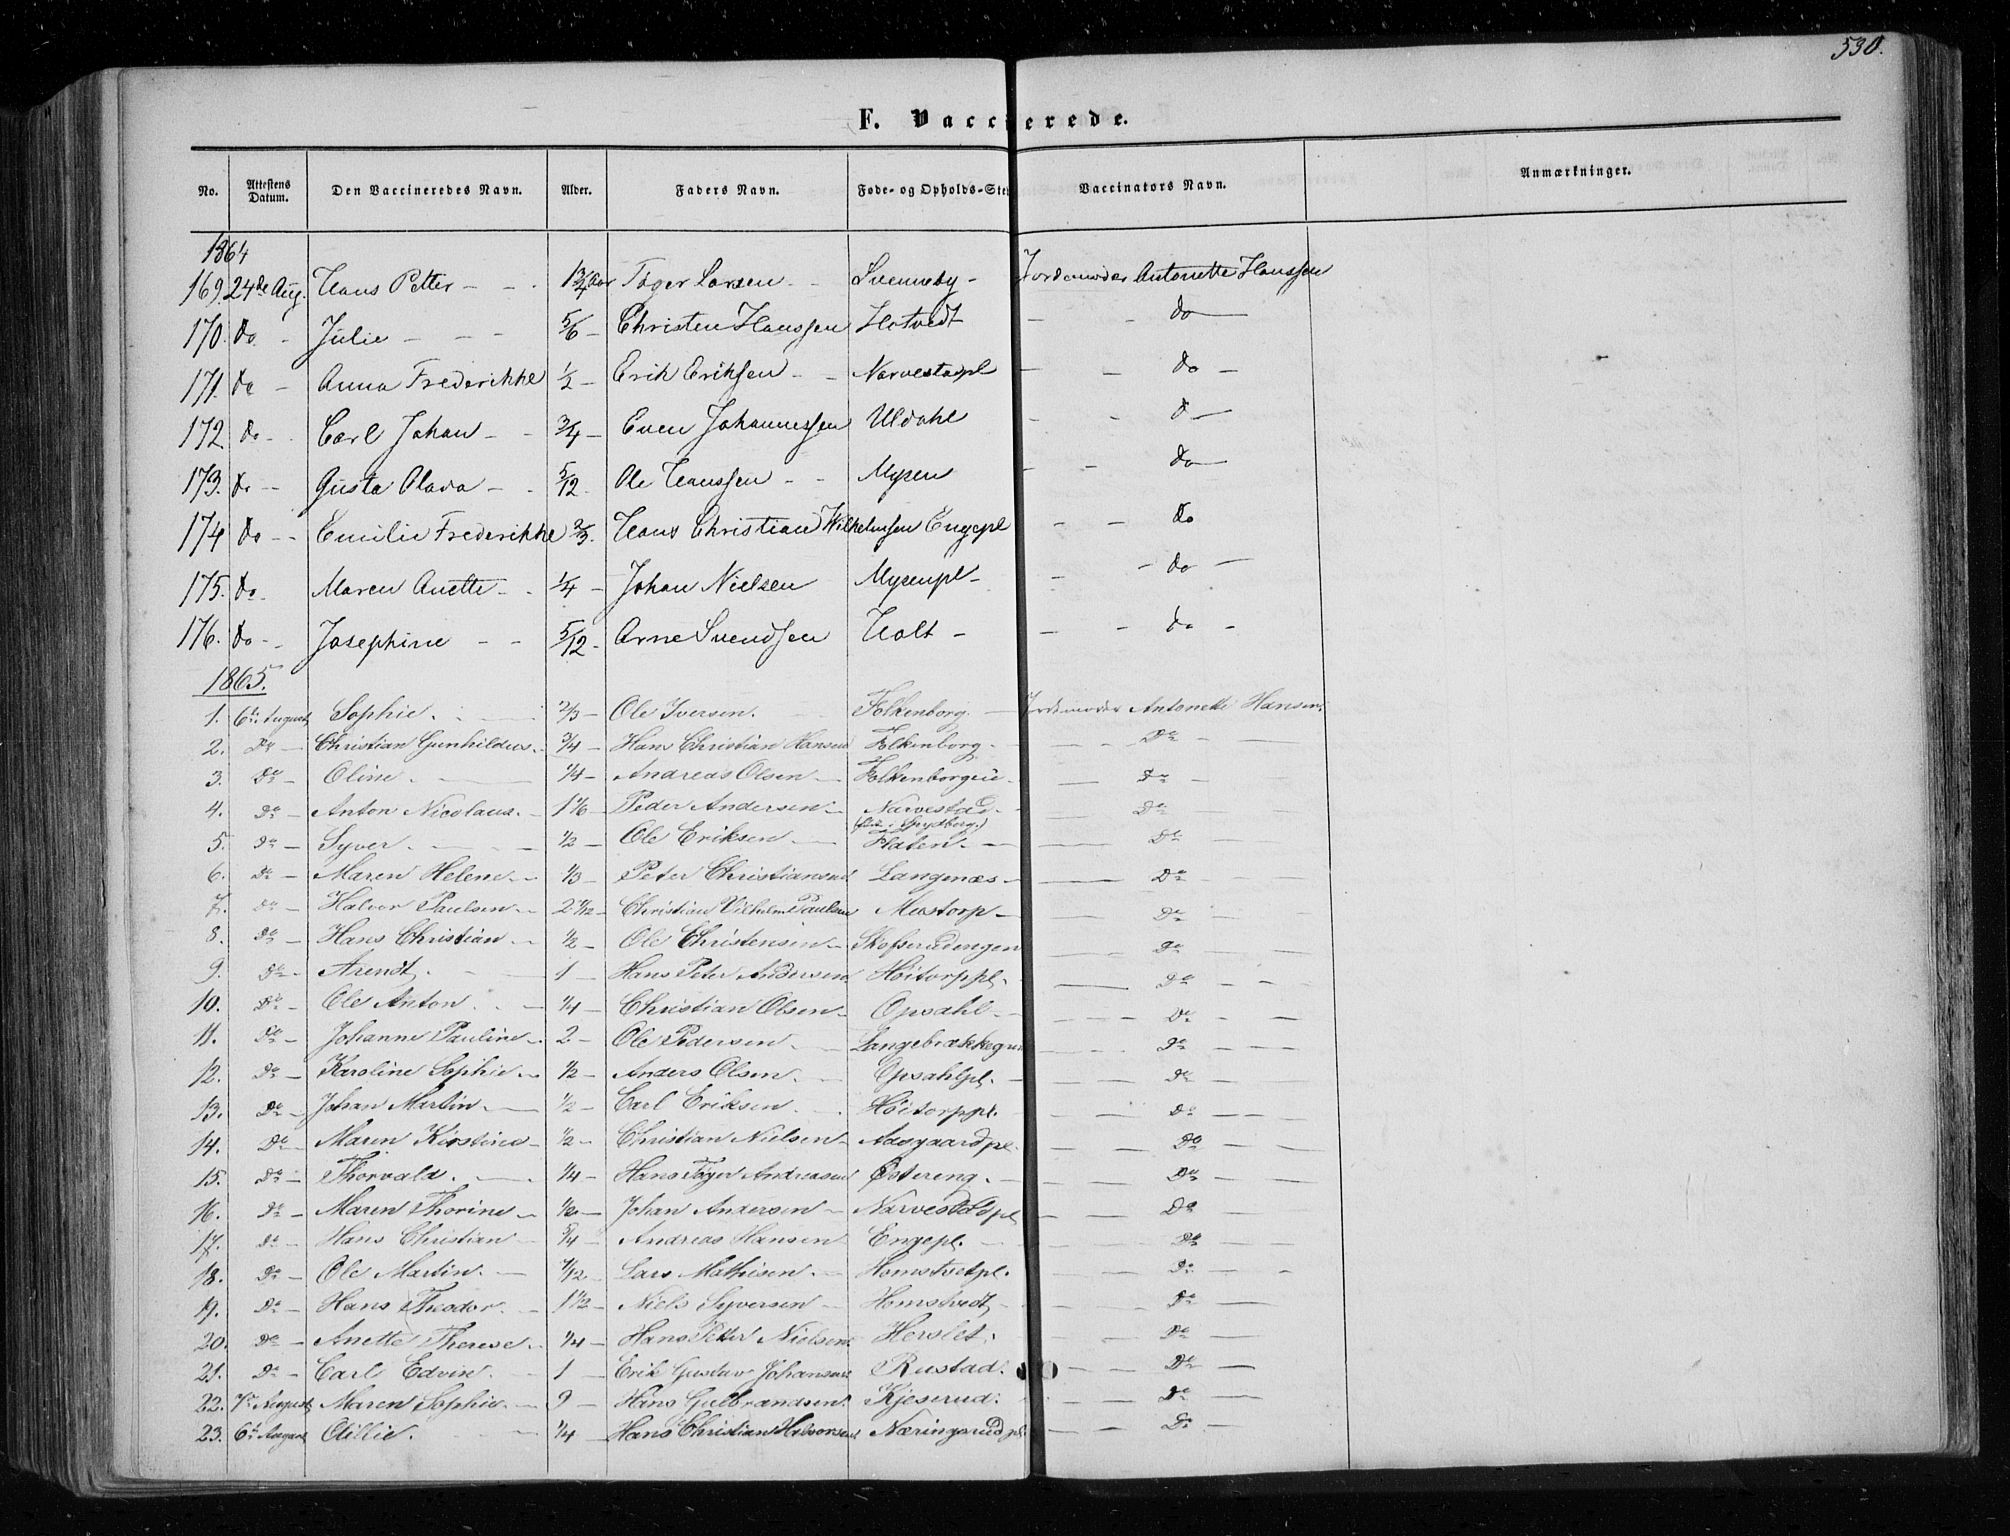 530.
F. Vaccinerede.
No. Attestens Datum. Den Vaccineredes Navn. Alder. Faders Navn. Føde- og Opholds-Sted Vaccinators Navn. Anmærkninger.
1864
169. 24de Aug. Hans Petter - - 1 3/4 Aar Tøger Larsen - - Svenneby - Jordemoder Antonette Hanssen
170. do - Julie - - - 5/6 - Christen Hanssen Hotvedt - - do -
171. do - Anna Frederikke 1/2 - Erik Eriksen - - Narvestadpl - - do -
172 do - - Carl Johan - - 3/4 - Even Johannessen Uldahl - - do -
173. do - - Gusta Olava - - 5/12 Ole Hanssen - - Mysen - - do -
174 do - - Emilie Frederikke 2/3. Hans Christian Wilhelmsen Engepl - - do
175. do - Maren Anette - - 1/4 - Johan Nielsen Mysenpl - - - do -
176. do - - Josephine - - 5/12 - Arne Svendsen Holt - - - do -
1865.
1. 6te August Sophie. - - 2/3 - Ole Iversen. Folkenborg. - Jordemoder Antonette Hansen.
2. Do - Christian Gunhildus. - 3/4 - Hans Christian Hansen Folkenborg. - - - Do - -
3. Do - Oline. - 1/4 - Andreas Olsen - Folkenborgeie - - Do -
4. Do - Anton Nicolaus. - 1 1/6 - Peder Andersen - Narvestad. - - Do -
(født i Spydberg.)
5. Do - Syver. - - 1/2 - Ole Eriksen. - Flaten. - - Do -
6. Do - Maren Helene - 1/3 - Peter Christiansen. Langenæs - - - Do - -
7. Do - Halvor Paulsen - 2 7/12 - Christian Vilhelm Paulsen Mustorp - - - Do - -
8. Do - Hans Christian - 1/2 - Ole Christensen - Skofserudengen - - Do - -
9. Do - Arendt. - - 1 - Hans Peter Andersen. Høitorppl. - - - Do - - -
10. Do - Ole Anton. - 1/4 - Christian Olsen - Opsahl - - - - Do - -
11. Do - Johanne Pauline - 2 - Ole Pedersen - Langebrækkegrd - - - Do - -
12. Do - Karoline Sophie - 1/2 - Anders Olsen. - Opsahlpl. - - - Do - -
13. Do - Johan Martin. - 1/2 - Carl Eriksen. Høitorppl. - - Do - -
14. Do - Maren Kirstine - 1/2 - Christian Nielsen - Aasgaardpl. - - Do - -
15. Do - Thorvald. - 1/4 - Hans Tøger Andreasen Østereng. - - - Do - -
16. Do - Maren Thorine - 1/2 - Johan Andersen - Narvestadpl - - Do -
17. Do - Hans Christian - 5/4 - Andreas Hansen Engepl. - - - Do -
18. Do - Ole Martin. - 7/12 - Lars Mathisen. - Homstvetpl. - - Do - -
19. Do - Hans Theodor. - 1 1/2 - Niels Syversen - Homstvedt - - - Do -
20. Do - Anette Therese. - 1/4 - Hans Peter Nielsen. Herslet. - - Do -
21. Do - Carl Edvin. - 1 - Erik Gustav Johansen Rustad. - - Do -
22. 7de August Maren Sophie. - 9 - Hans Gulbrandsen. Kjeserud. - - - Do -
23. 6te August Ottilie. - 1/4 - Hans Christian Halvorsen Næringsrudpl - - Do -